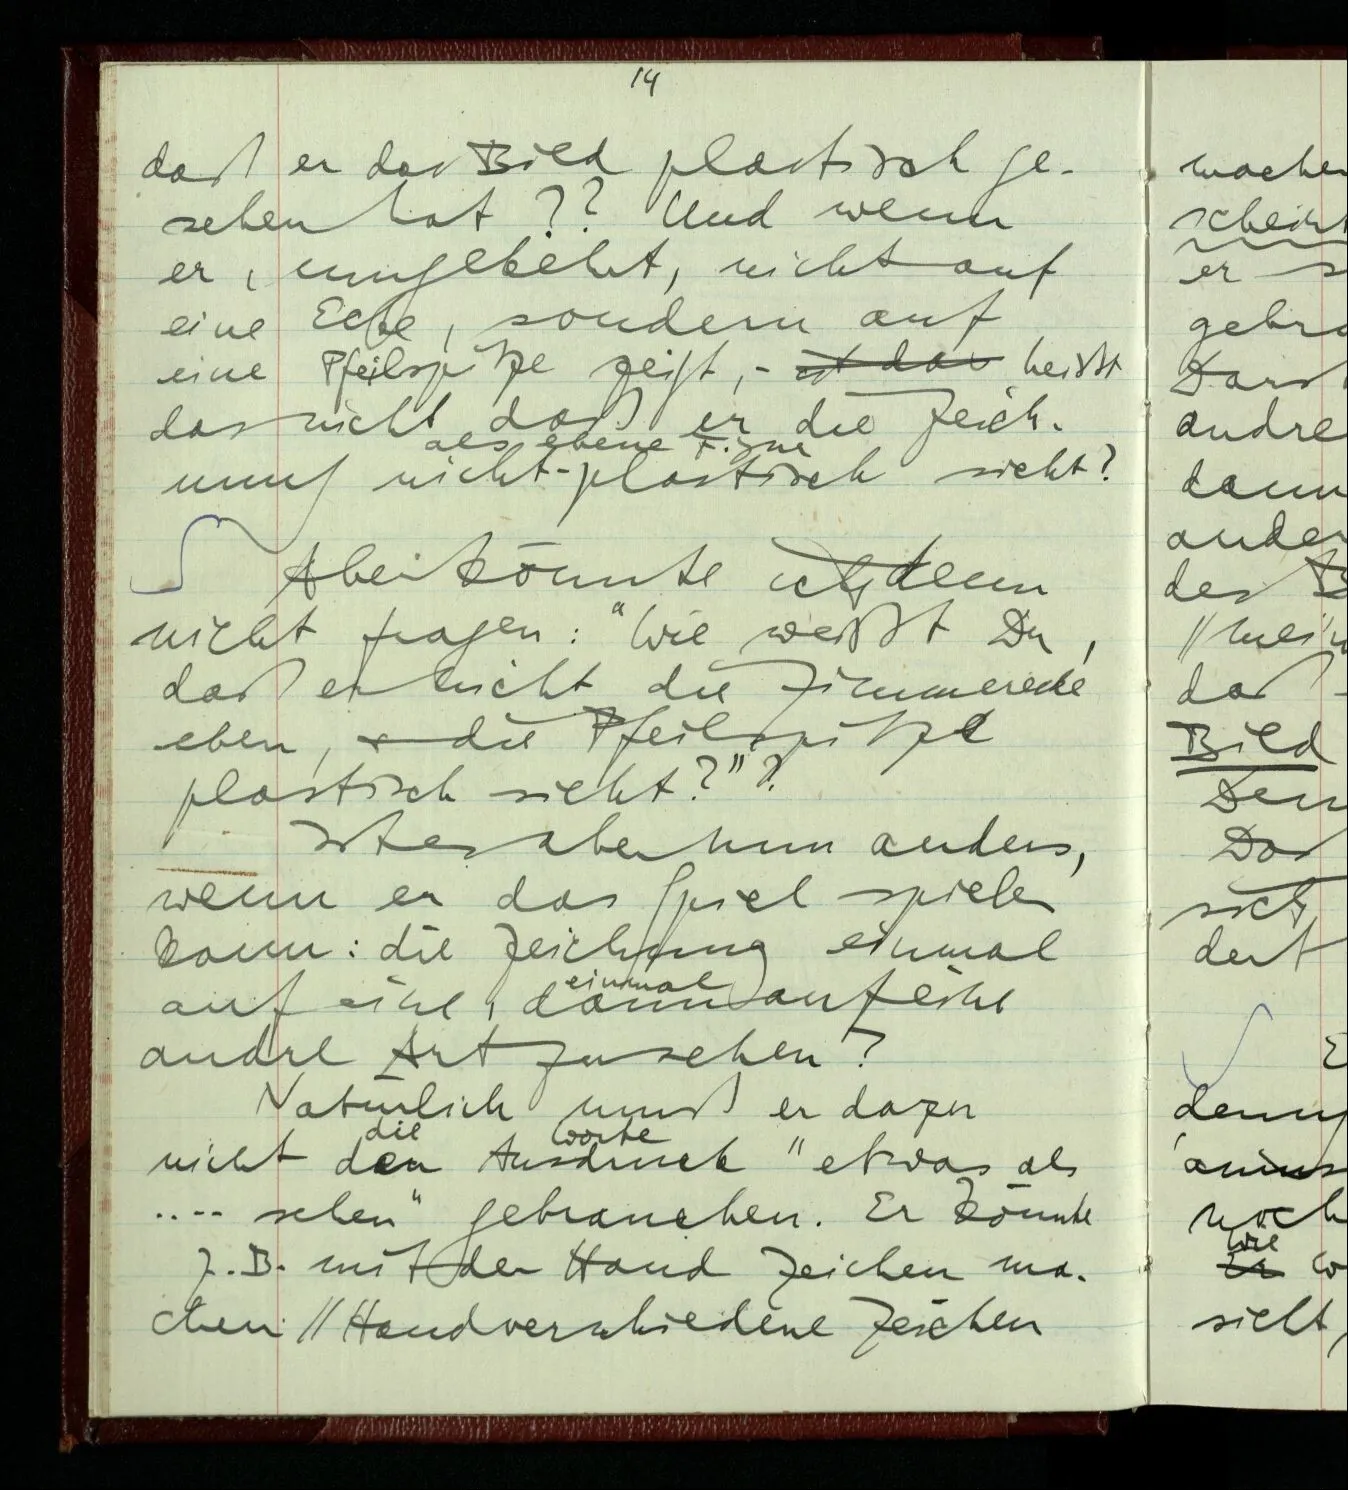 14
daß er das Bild plastisch ge-
sehen hat ?? Und wenn
er, umgekehrt, nicht auf
eine Ecke, sondern auf
eine Pfeilspitze zeigt, - ist das heißt
das nicht daß er die Zeich-
als ebene Figur
nung nicht-plastisch sieht?
Aber könnte ich denn
nicht fragen: "Wie weißt Du,
daß er nicht die Zimmerecke
eben, & die Pfeilspitze
plastisch sieht?"?
Ist es aber nun anders,
wenn er das Spiel spielen
kann: die Zeichnung einmal
einmal
auf eine, dann auf eine
andre Art zu sehen?
Natürlich muß er dazu
die Worte
nicht den Ausdruck "etwas als
.... sehen" gebrauchen. Er könnte
z.B. mit der Hand Zeichen ma-
chen // Hand verschiedene Zeichen
machen
scheint
er
gebra
Darst
andre
dann
ander
des B
// mein
das
Bild
Denn
Das
sich
dert
E
denn
anims
noch
Wie
Er w
sieht,